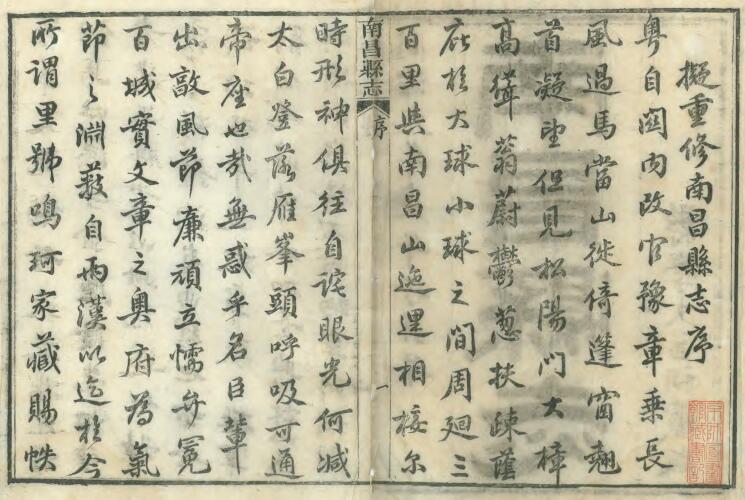 擬重修南昌縣志序
粵自閩內改官豫章乘長
風過馬當山徙倚篷窗翹
首凝望但見松陽門大樟
高聳蓊蔚鬱葱扶疎蔭
庇於大球小球之間周廻三
百里與南昌山迤邐相接尓
南昌縣志
序
一
時形神俱往自詫眼光何減
太白登落雁峯頭呼吸可通
帝座也哉無惑乎名臣輩
出敵風節廉頑立懦弁冕
百城實文章之奧府為氣
節之淵藪自兩漢以迄於今
所謂里號鳴珂家藏賜帙